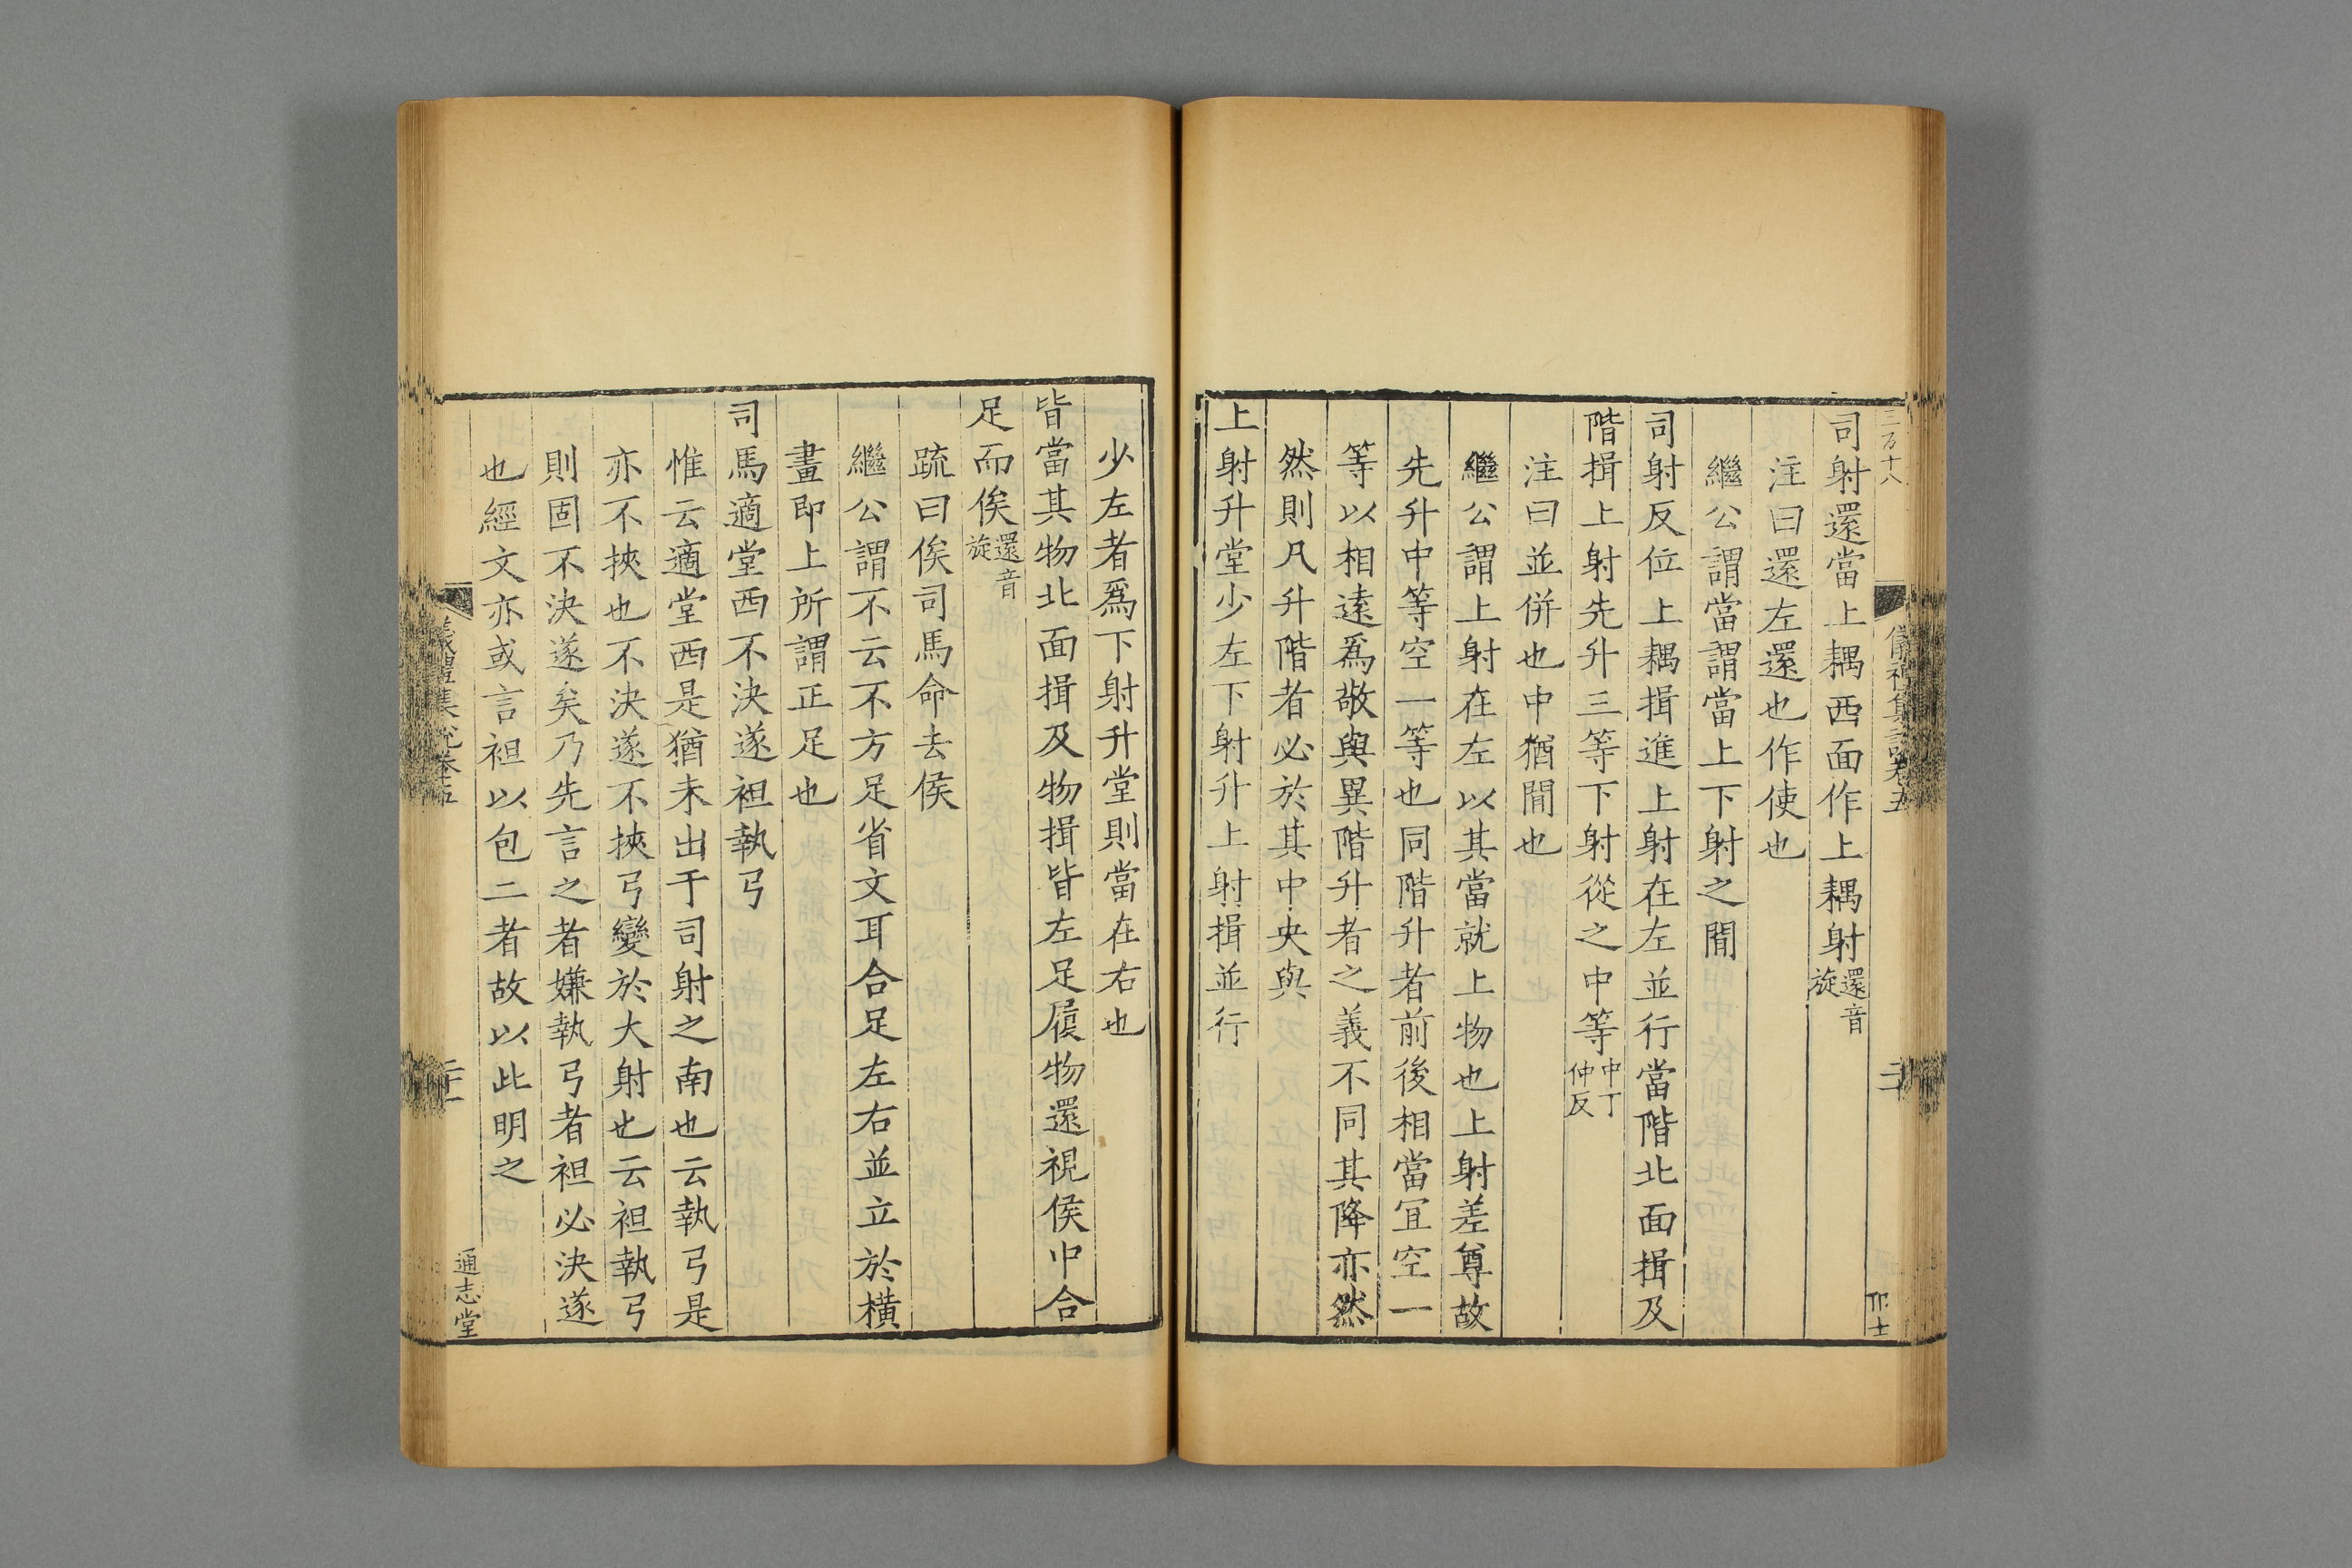 司射還當上耦西面作上耦射還音旋
注曰還左還也作使也
繼公謂當謂當上下射之間
司射反位上耦揖進上射在左並行當階北面揖及
階揖上射先升三等下射從之中等中丁仲反
注曰並併也中猶間也
繼公謂上射在左以其當就上物也上射差尊故
先升中等空一等也同階升者前後相當宜空一
等以相遠爲敬與異階升者之義不同其降亦然
然則凡升階者必於其中央與
上射升堂少左下射升上射揖並行
少左者爲下射升堂則當在右也
皆當其物北面揖及物揖皆左足履物還視侯中合
足而俟還音旋
疏曰俟司馬命去侯
繼公謂不云不方足省文耳合足左右並立於橫
畫即上所謂正足也
司馬適堂西不決遂袒執弓
惟云適堂西是猶未出于司射之南也云執弓是
亦不挾也不決遂不挾弓變於大射也云袒執弓
則固不決遂矣乃先言之者嫌執弓者袒必決遂
也經文亦或言袒以包二者故以此明之
儀禮集說卷五
通志堂